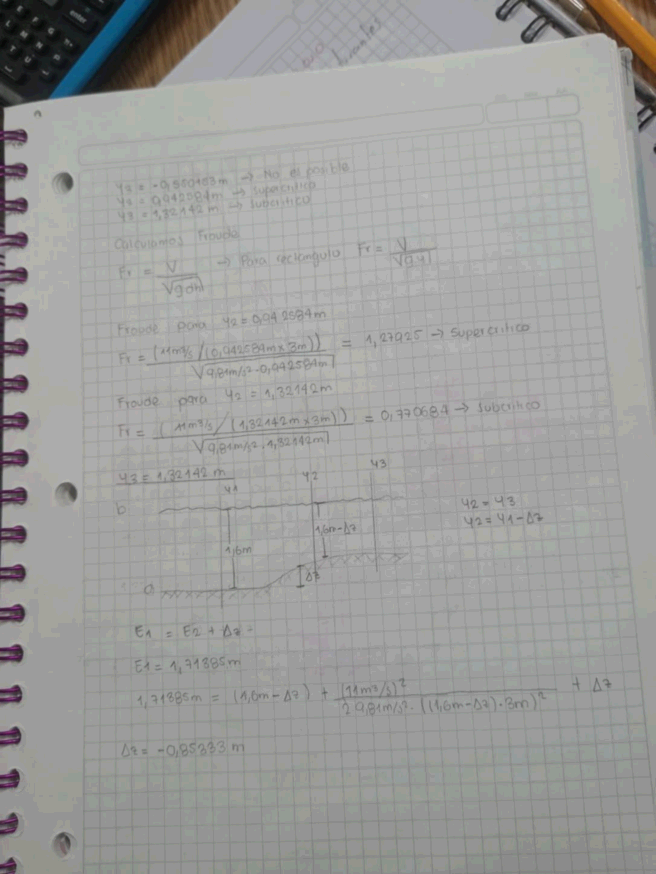 y3 = -0,550153m → No es posible
y2 = 0,942584m → supercritico
y3 = 1,32142 m → subcritico
Calculamos Froude
Fr = V / √gdh → Para rectangulo Fr = V / √g.y
Froude para y2 = 0,942584m
Fr = (11m³/s / (0,942584m x 3m)) / √9,81m/s² · 0,942584m = 1,27925 → Supercritico
Froude para y2 = 1,32142m
Fr = (11m³/s / (1,32142m x 3m)) / √9,81m/s² · 1,32142m = 0,770687 → subcritico
y3 = 1,32142 m
y1 y2 y3
b
y2 = y3
y2 = y1-Δz
1,6m-Δz
1,6m
Δz
a
E1 = E2 + Δz
E1 = 1,71885m
1,71885m = (1,6m-Δz) + (11m³/s)² / 2 9,81m/s² · ((1,6m-Δz)·3m)² + Δz
Δz = -0,85333 m